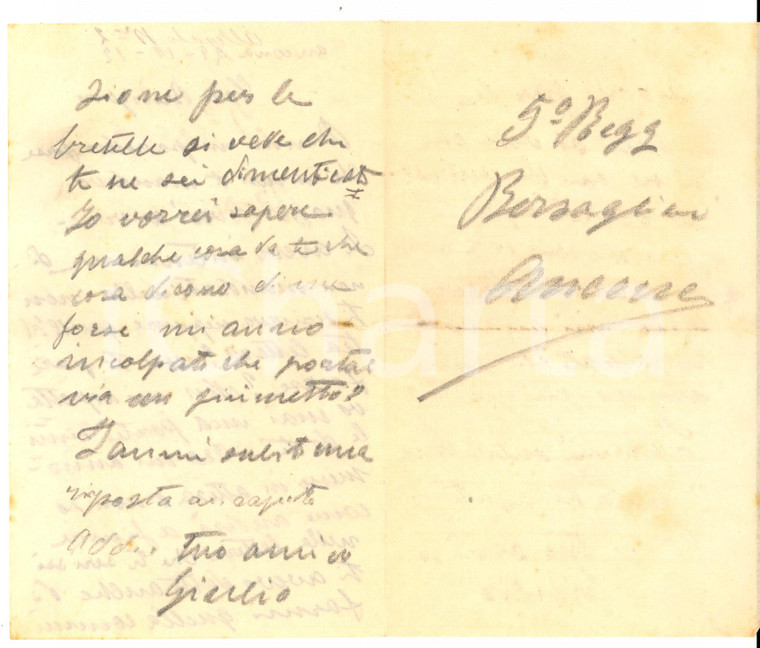 zione per le
bretelle si vede che
te ne sei dimenticato
Io vorrei sapere
qualche cosa da te che
cosa dicono di me
forse mi anno
incolpato che portai
via un
Fammi subito una
risposta ai capito
Addio tuo amico
Giulio
5º Regg
Bersaglieri
Ancona
Charta